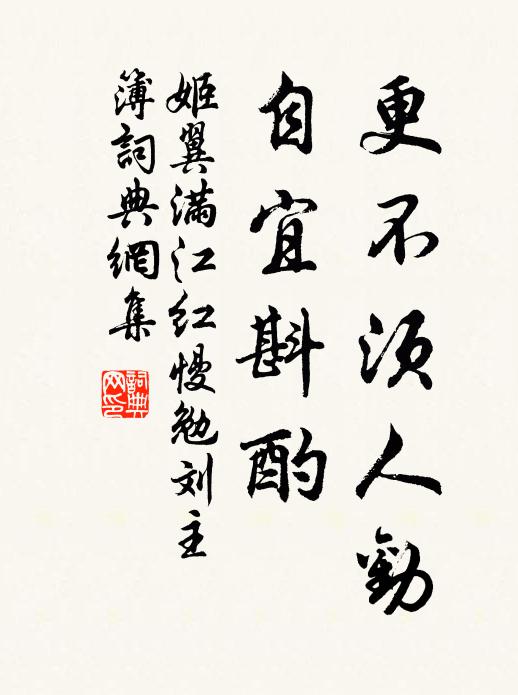 更不须人勸
自宜斟酌
姬翼满江红慢勉刘主
簿詞典網集
詞典网印